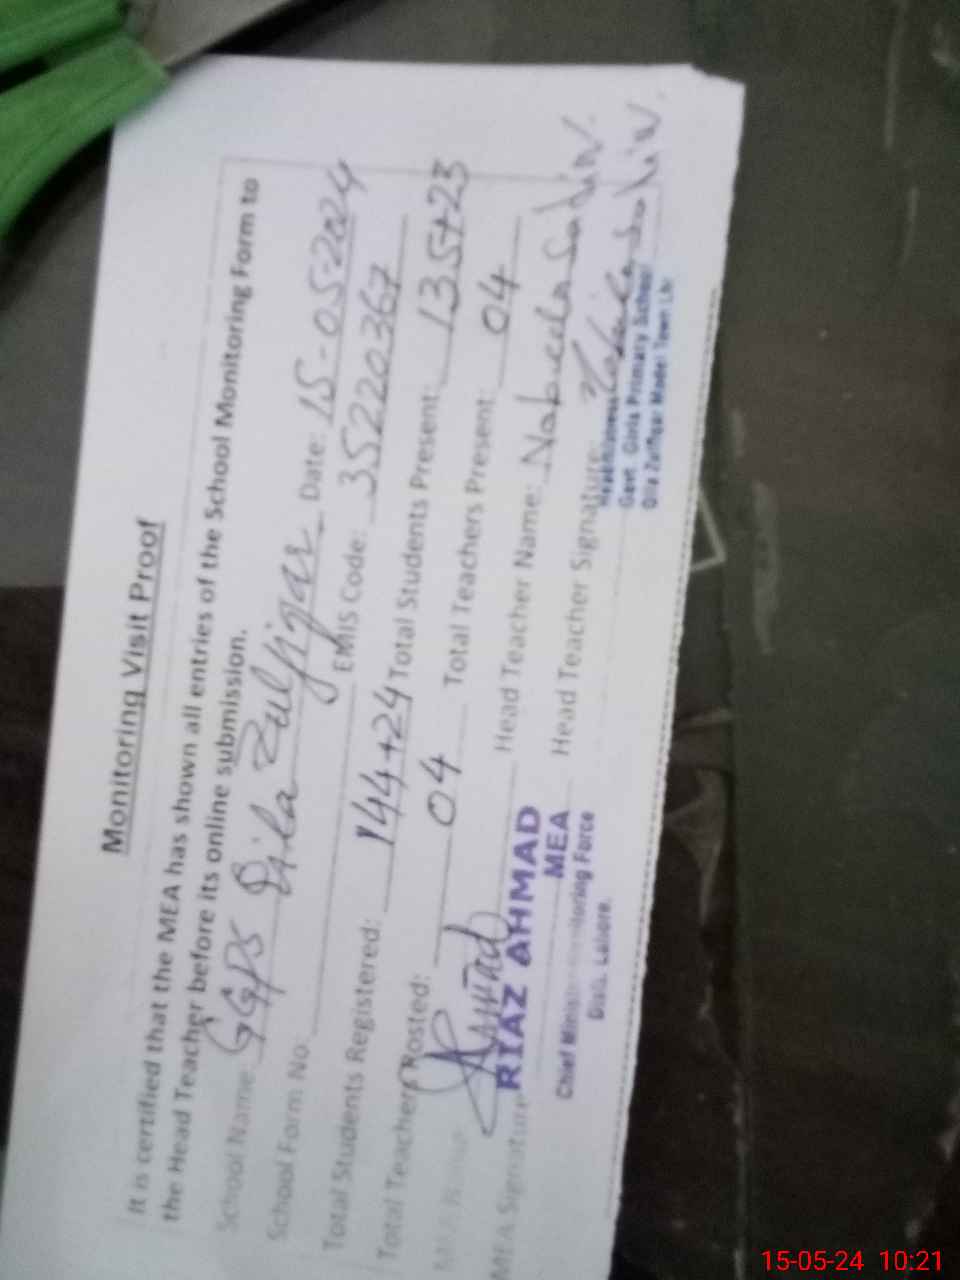 Monitoring Visit Proof
It is certified that the MEA has shown all entries of the School Monitoring Form to
the Head Teacher before its online submission.
School Name: GGPS Qila Zulfiqar Date: 15-05-2024
School Form No: EMIS Code: 35220367
Total Students Registered: 144+24 Total Students Present: 135+23
Total Teachers Posted: 04 Total Teachers Present: 04
MEA Name Head Teacher Name: Nabeela Sadia
MEA Signature Head Teacher Signature:
RIAZ AHMAD
MEA
Chief Minister Monitoring Force
Distt. Lahore.
Headmistress
Govt. Girls Primary School
Qila Zulfiqar Model Town Lhr
15-05-24 10:21